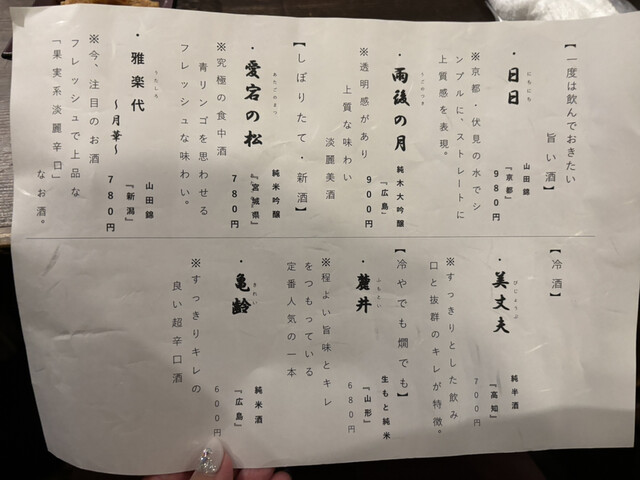 【一度は飲んでおきたい
旨い酒】
・日日
にちにち
山田錦
『京都』
980円
※京都・伏見の水でシ
ンプルに、ストレートに
上質感を表現。
・雨後の月
うごのつき
純木大吟醸
『広島』
900円
※透明感があり
上質な味わい
淡麗美酒
【しぼりたて・新酒】
・愛宕の松
あたごのまつ
純米吟醸
『宮城県』
780円
※究極の食中酒
青リンゴを思わせる
フレッシュな味わい。
・雅楽代
うたしろ
～月華～
山田錦
『新潟』
780円
※今、注目のお酒
フレッシュで上品な
「果実系淡麗辛口」
なお酒。
【冷酒】
・美丈夫
びじょうふ
純半酒
『高知』
700円
※すっきりとした飲み
口と抜群のキレが特徴。
【冷やでも燗でも】
・麓井
ふもとい
生もと純米
『山形』
680円
※程よい旨味とキレ
をつもっている
定番人気の一本
・亀齢
きれい
純米酒
『広島』
600円
※すっきりキレの
良い超辛口酒